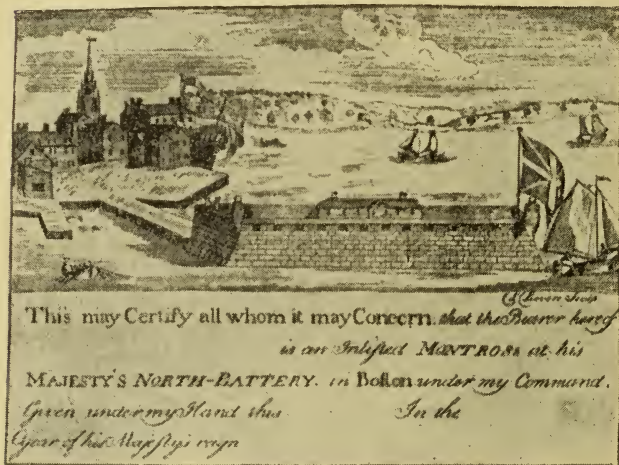 This may Certify all whom it may Concern. that the Bearer hereof
is an Inliſted MONTROSS at his
MAJESTY'S NORTH-BATTERY. in Boſton under my Command.
Given under my Hand this In the
Year of his Majeſty's reign